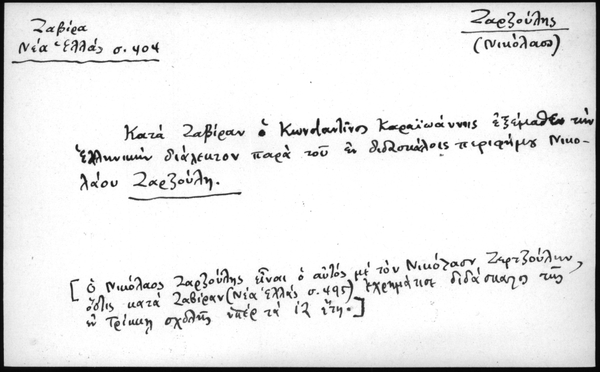 Ζαβίρα
Νέα Ἑλλάς σ. 404
Ζαρζούλης
(Νικόλαος)
Κατά Ζαβίραν ὁ Κωνσταντῖνος Καραϊωάννης ἐξέμαθεν τήν
ἑλληνικήν διάλεκτον παρά τοῦ ἐν διδασκάλοις περιφήμου Νικο-
λάου Ζαρζούλη.
[Ὁ Νικόλαος Ζαρζούλης εἶναι ὁ αὐτός μέ τόν Νικόλαον Ζερτζούλην,
ὅστις κατά Ζαβίραν (Νέα Ἑλλάς σ. 495) ἐχρημάτισε διδάσκαλος τῆς
ἐν Τρίκκῃ σχολῆς ὑπέρ τά ἔτη.]